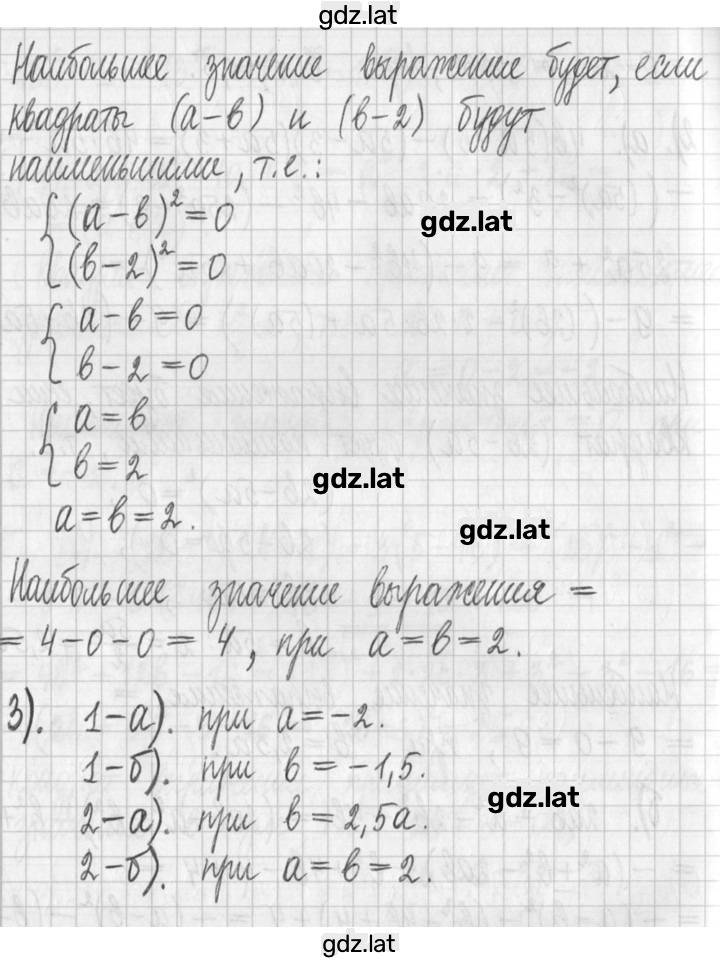 gdz.lat
Наибольшее значение выражение будет, если
квадраты (а-в) и (в-2) будут
наименьшими, т.е.:
(а-в)²=0
gdz.lat
(в-2)²=0
а-в=0
в-2=0
а=в
в=2
gdz.lat
а=в=2.
gdz.lat
Наибольшее значение выражения =
= 4-0-0= 4, при а=в=2.
3). 1-а). при а=-2.
1-б). при в=-1,5.
gdz.lat
2-а). при в=2,5а.
2-б). при а=в=2.
gdz.lat